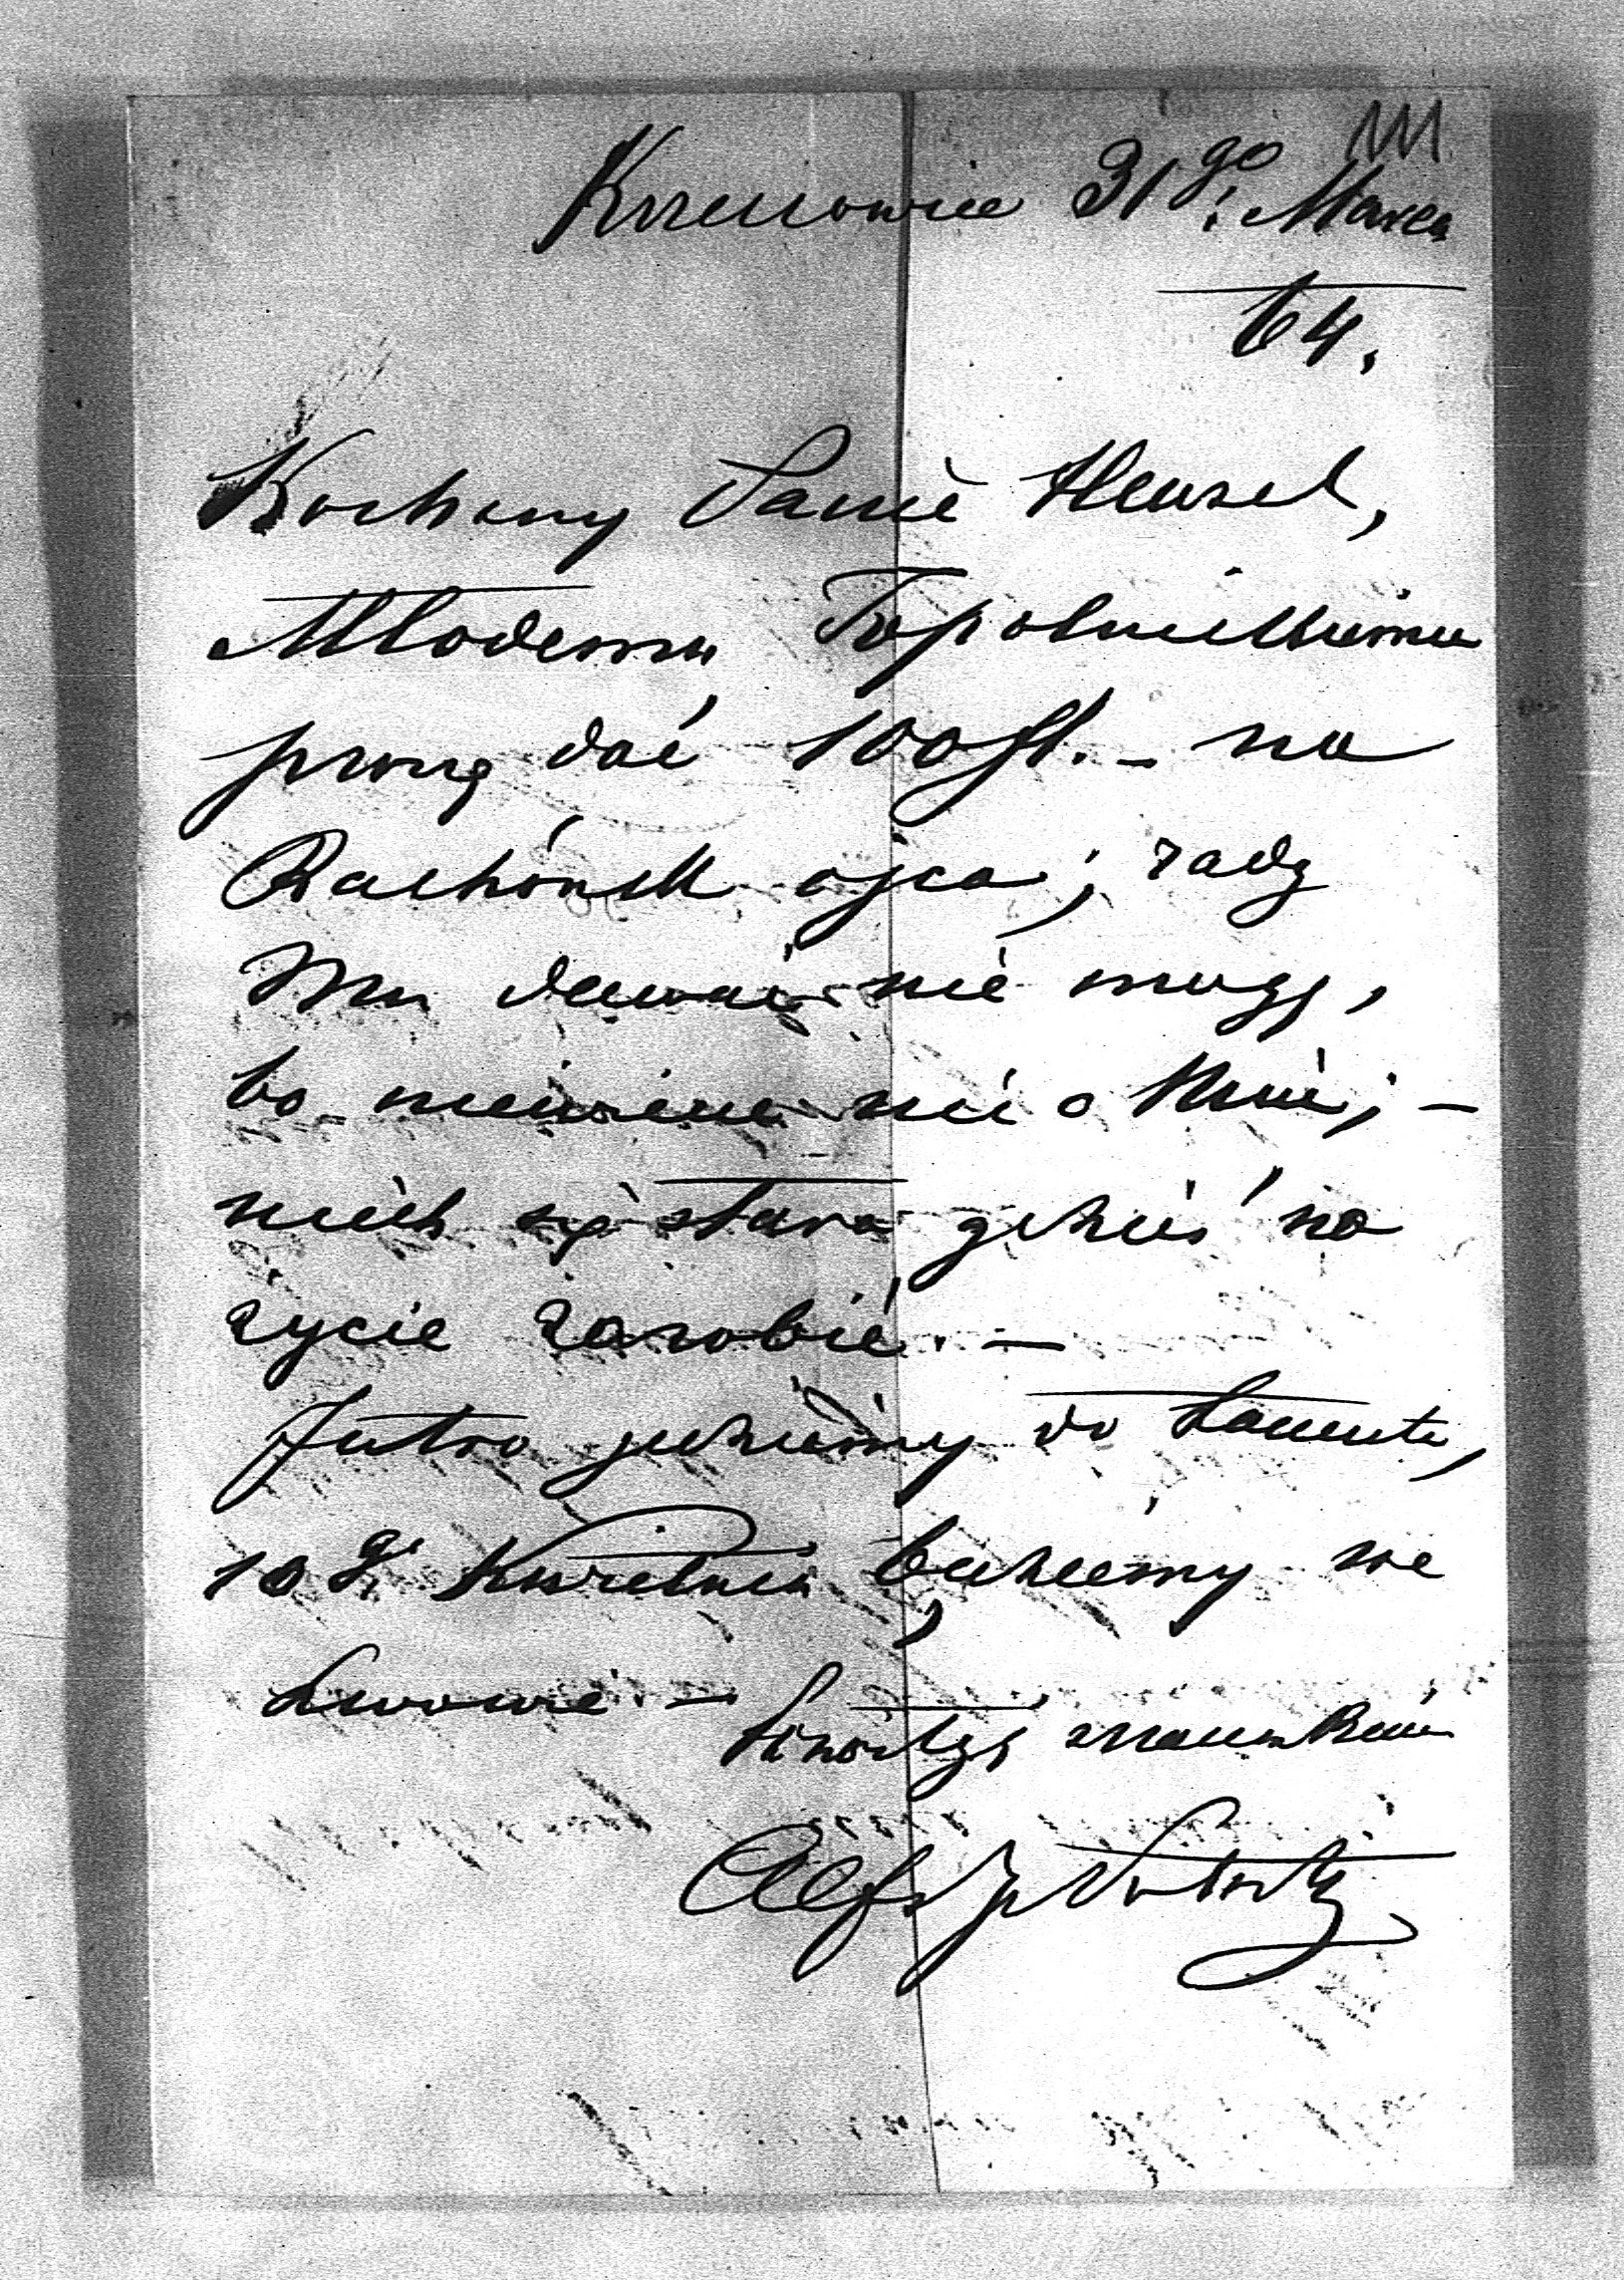 Krzeszowice 31go Marca
64.
Kochany Panie Hensel,
Młodemu Topolnickiemu
proszę dać 100 fl. – na
Rachónek ojca; radę
Mu dawać nie mogę,
bo nie nie o Mnie; –
niech się stara gdzieś na
życie zarobić. –
Jutro jedziemy do Łańcuta,
10go Kwietnia będziemy we
Lwowie. –
szacunkiem
Alfr Potocki